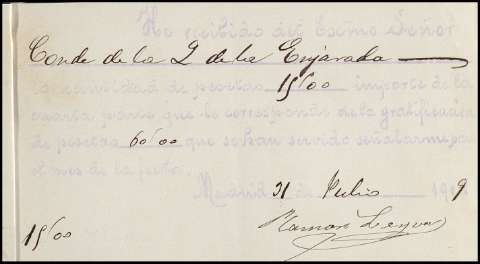 He recibido del Excmo Señor
Conde de la Q de la Enjarada
la cantidad de pesetas 15'00 importe de la
cuarta parte que le corresponde de la gratificación
de pesetas 60'00 que se han servido señalarme por
el mes de la fecha.
Madrid 31 de Julio 19 9
Ramon Leyva
15'00